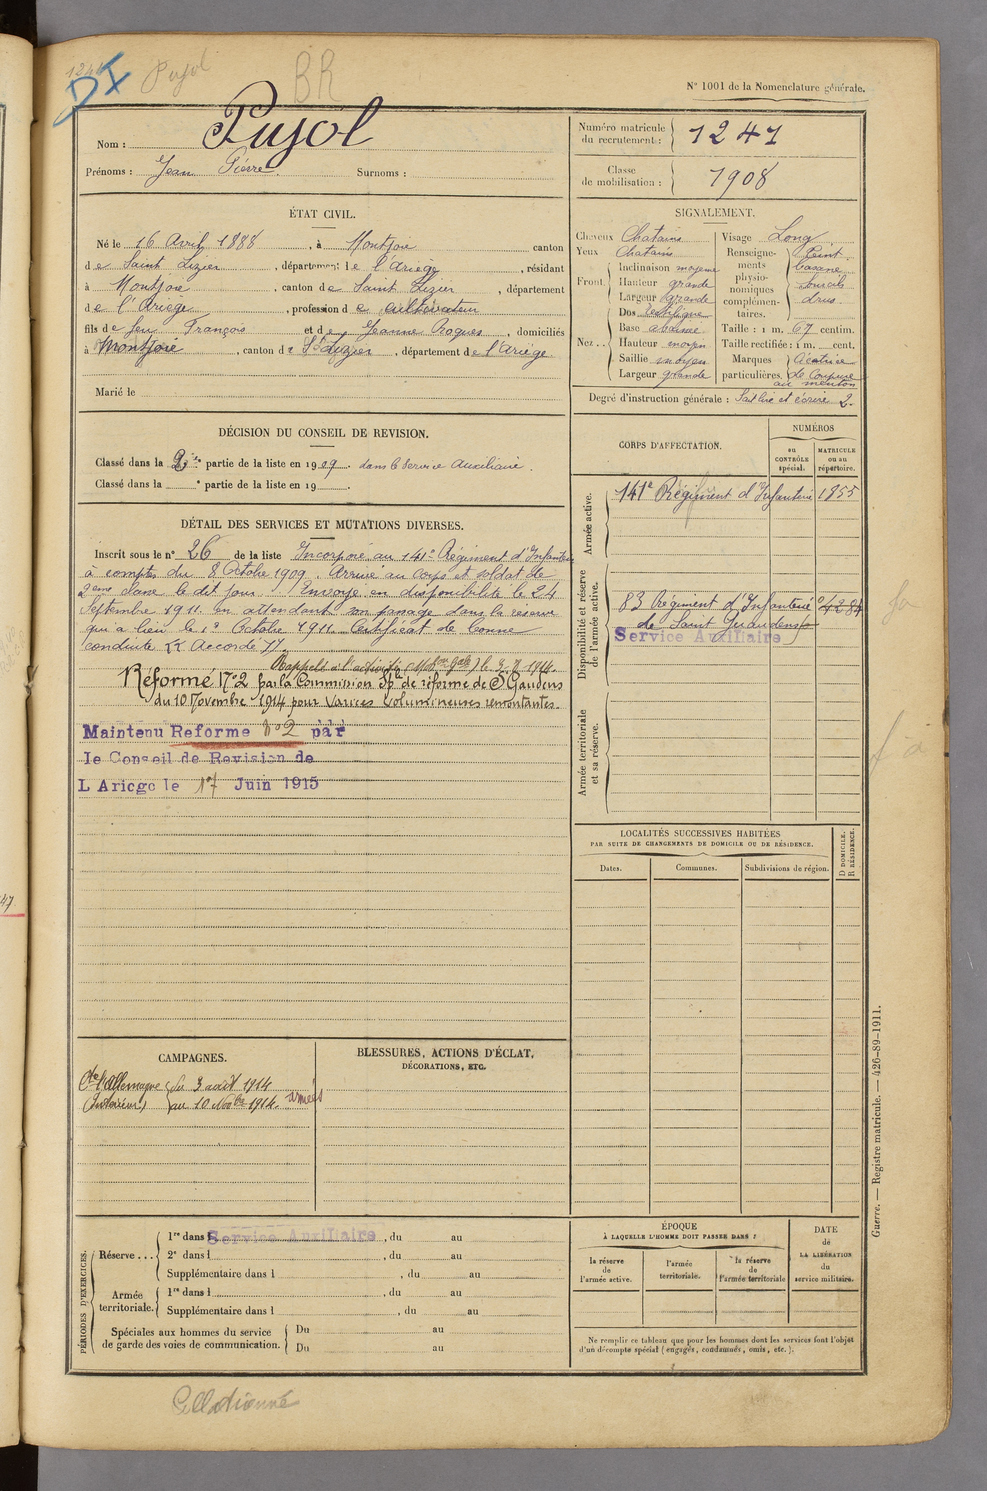 1241
DI
Pujol
BR
N° 1001 de la Nomenclature générale.
Nom : Pujol
Prénoms : Jean Pierre Surnoms :
Numéro matricule du recrutement : 1241
Classe de mobilisation : 1908
ÉTAT CIVIL.
Né le 16 Avril 1888, à Montjoie canton
de Saint Lizier, département de l'Ariège, résidant
à Montjoie, canton de Saint Lizier, département
de l'Ariège, profession de cultivateur
fils de feu François et de Jeanne Rogues, domiciliés
à Montjoie, canton de St Lizier, département de l'Ariège.
Marié le
SIGNALEMENT.
Cheveux Chatains
Yeux Chatains
Front. Inclinaison moyenne
Hauteur grande
Largeur grande
Nez.. Dos rectiligne
Base abaissée
Hauteur moyen
Saillie moyen
Largeur grande
Visage Long
Renseignements physionomiques complémentaires. Teint basané sourcils drus.
Taille : 1 m. 67 centim.
Taille rectifiée : 1 m. cent.
Marques particulières. Cicatrice de coupure
au menton
Degré d'instruction générale : Sait lire et écrire 2.
DÉCISION DU CONSEIL DE REVISION.
Classé dans la 2e partie de la liste en 1909. dans le Service Auxiliaire.
Classé dans la e partie de la liste en 19
DÉTAIL DES SERVICES ET MUTATIONS DIVERSES.
Inscrit sous le n° 26 de la liste Incorporé au 141e Régiment d'Infanterie
à compter du 8 Octobre 1909. Arrivé au corps et soldat de
2eme classe le dit jour. Envoyé en disponibilité le 24
Septembre 1911 en attendant son passage dans la réserve
qui a lieu le 1er Octobre 1911. Certificat de bonne
conduite "Accordé".
Rappelé à l'activité (Mobon Gale) le 3. 8. 1914.
Réformé N°2 par la Commission Sple de réforme de St Gaudens
du 10 Novembre 1914 pour Varices volumineuses remontantes.
Maintenu Reforme N°2 par
le Conseil de Revision de
L Ariege le 17 Juin 1915
CORPS D'AFFECTATION.
NUMÉROS
au CONTRÔLE spécial.
MATRICULE ou au répertoire.
Armée active.
141e Régiment d'Infanterie 1855
Disponibilité et réserve de l'armée active.
83 Régiment d'Infanterie 04284
de Saint Gaudens
Service Auxiliaire
Armée territoriale et sa réserve.
LOCALITÉS SUCCESSIVES HABITÉES
PAR SUITE DE CHANGEMENTS DE DOMICILE OU DE RÉSIDENCE.
Dates.
Communes.
Subdivisions de région.
D DOMICILE.
R RÉSIDENCE.
CAMPAGNES.
Cte l'Allemagne du 3 août 1914
(Intérieur) au 10 Nobre 1914. armées
BLESSURES, ACTIONS D'ÉCLAT,
DÉCORATIONS, ETC.
PÉRIODES D'EXERCICES.
Réserve... 1re dans l Service Auxiliaire, du au
2e dans l , du au
Supplémentaire dans l , du au
Armée territoriale. 1re dans l , du au
Supplémentaire dans l , du au
Spéciales aux hommes du service
de garde des voies de communication.
Du au
Du au
ÉPOQUE
À LAQUELLE L'HOMME DOIT PASSER DANS :
la réserve de l'armée active.
l'armée territoriale.
la réserve de l'armée territoriale
DATE
de
LA LIBÉRATION
du
service militaire.
Ne remplir ce tableau que pour les hommes dont les services font l'objet
d'un décompte spécial (engagés, condamnés, omis, etc.).
Guerre. — Registre matricule. — 426-89-1911.
47